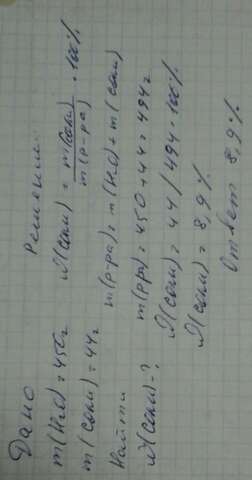 Дано
m(H2O)=450г
m(соли)=44г
Найти
W(соли)-?
Решение
W(соли) = m(соли)/m(р-ра) · 100%
m(р-ра)= m(H2O)+m(соли)
m(рра)=450+44=494г
W(соли)= 44/494·100%
W(соли)= 8,9%
Ответ 8,9%